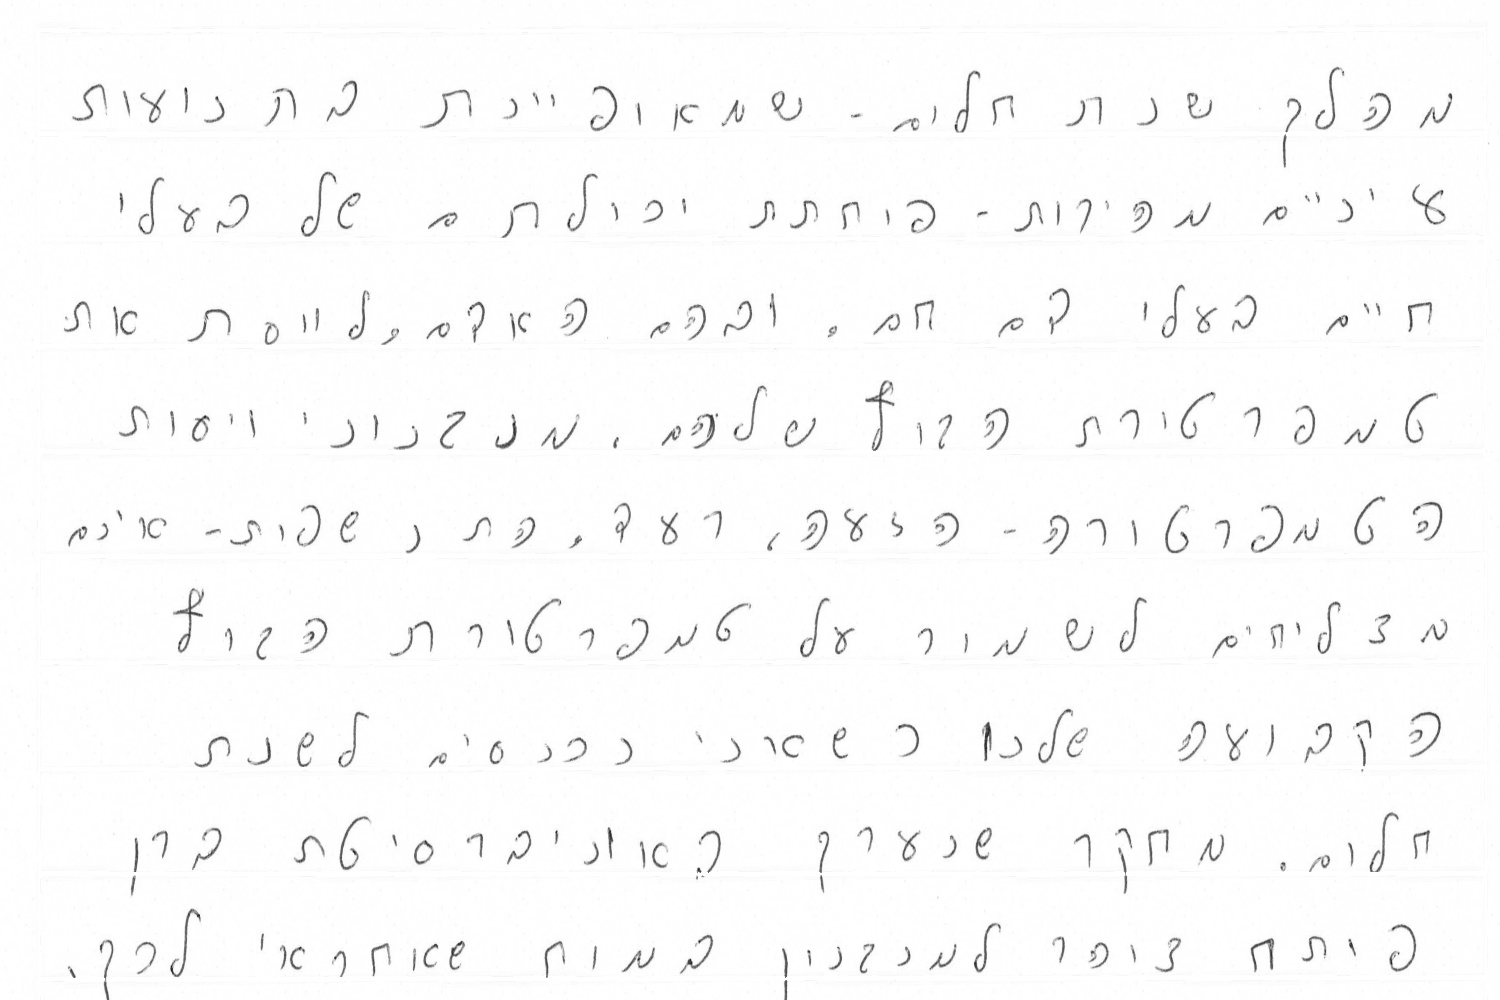 מהלך שנת חלום - שמאופיינת בתנועות
עיניים מהירות - פוחתת יכולתם של בעלי
חיים בעלי דם חם, ובהם האדם, לווסת את
טמפרטורת הגוף שלהם. מנגנוני ויסות
הטמפרטורה - הזעה, רעד, התנשפות - אינם
מצליחים לשמור על טמפרטורת הגוף
הקבועה שלנו כשאנו נכנסים לשנת
חלום. מחקר שנערך באוניברסיטת ברן
פיתח צוהר למנגנון במוח שאחראי לכך.